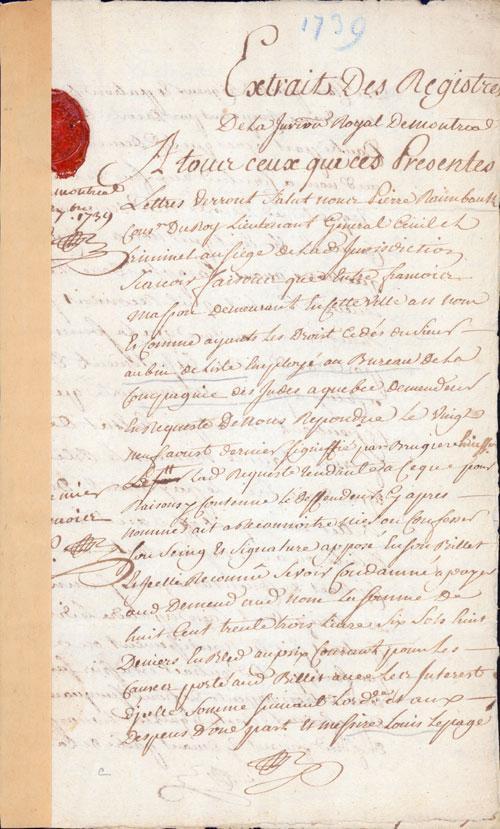 1739
Extrait Des Registres
De La Jurison Royal De montreal
A tour ceux que ces Presentes
Lettres verront Salut nour Pierre Raimbault
Consr Du Roy Lieutenant General Civil et
Criminel au Siege de Lad Jurisdiction
Scavoir faisons que Entre francois
masson demeurant En Cette Ville au nom
Et comme ayant Les Droit Cedés du Sieur
aubin de Liste Employé au Bureau de La
Compagnie des Indes a quebec demandeur
En Requeste De Nous Repondue le Vingt
neuf aoust dernier Signiffié par Brugiere huissier
Lad Requeste tendante a Ce que pour
Raisons y contenue le deffendeur Cy apres
nommé ait a Reconnoistre
Son Seing Et Signature apposé En Son Billet
Reconnu Se voir Condamné a payer
aud Demandr aud nom la Somme de
huit Cent trente trois Livre Six Sols huit
Deniers En Bled au prix Courant pour Les
Causes porté aud Billet avec Les Interest
Somme Suivant Lordce et aux
depens d'une part Et messire Louis Lepage
montreal
7 bre 1739